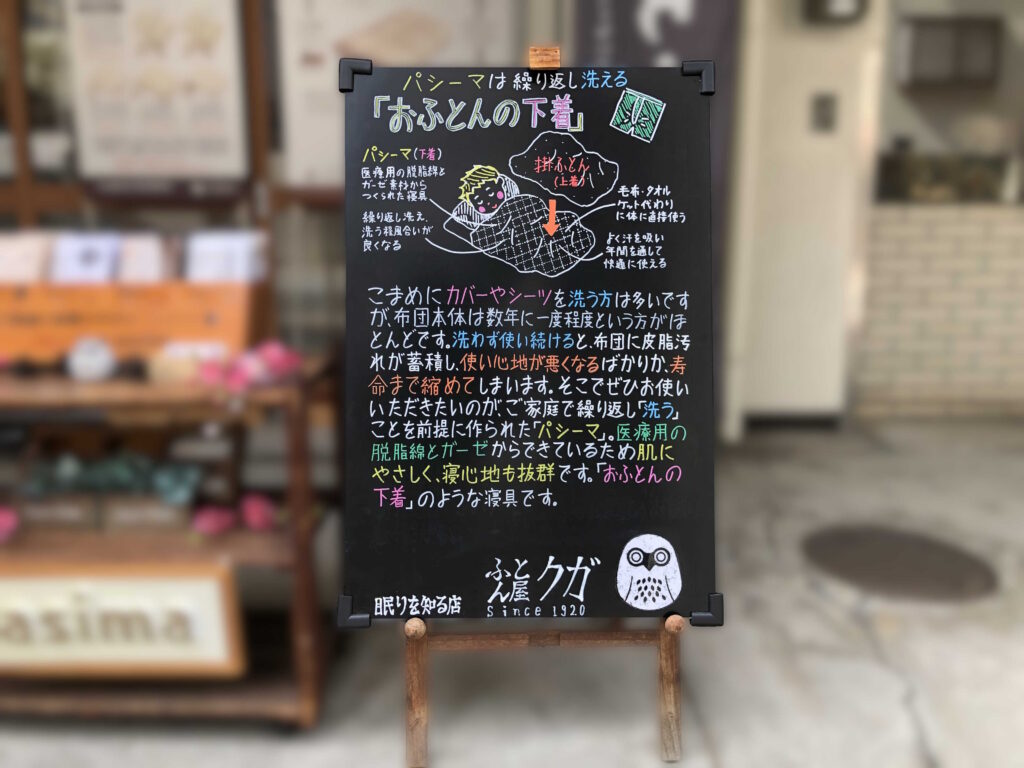 パシーマは繰り返し洗える
「おふとんの下着」
パシーマ(下着)
医療用の脱脂綿と
ガーゼ素材から
つくられた寝具
繰り返し洗え、
洗う程風合いが
良くなる
掛ふとん
(上着)
毛布・タオル
ケット代わり
に体に直接使う
よく汗を吸い
年間を通して
快適に使える
こまめにカバーやシーツを洗う方は多いです
が、布団本体は数年に一度程度という方がほ
とんどです。洗わず使い続けると、布団に皮脂汚
れが蓄積し、使い心地が悪くなるばかりか、寿
命まで縮めてしまいます。そこでぜひお使い
いただきたいのが、ご家庭で繰り返し「洗う」
ことを前提に作られた「パシーマ」。医療用の
脱脂綿とガーゼからできているため肌に
やさしく、寝心地も抜群です。「おふとんの
下着」のような寝具です。
眠りを知る店
ふとん屋クガ
Since 1920
asima